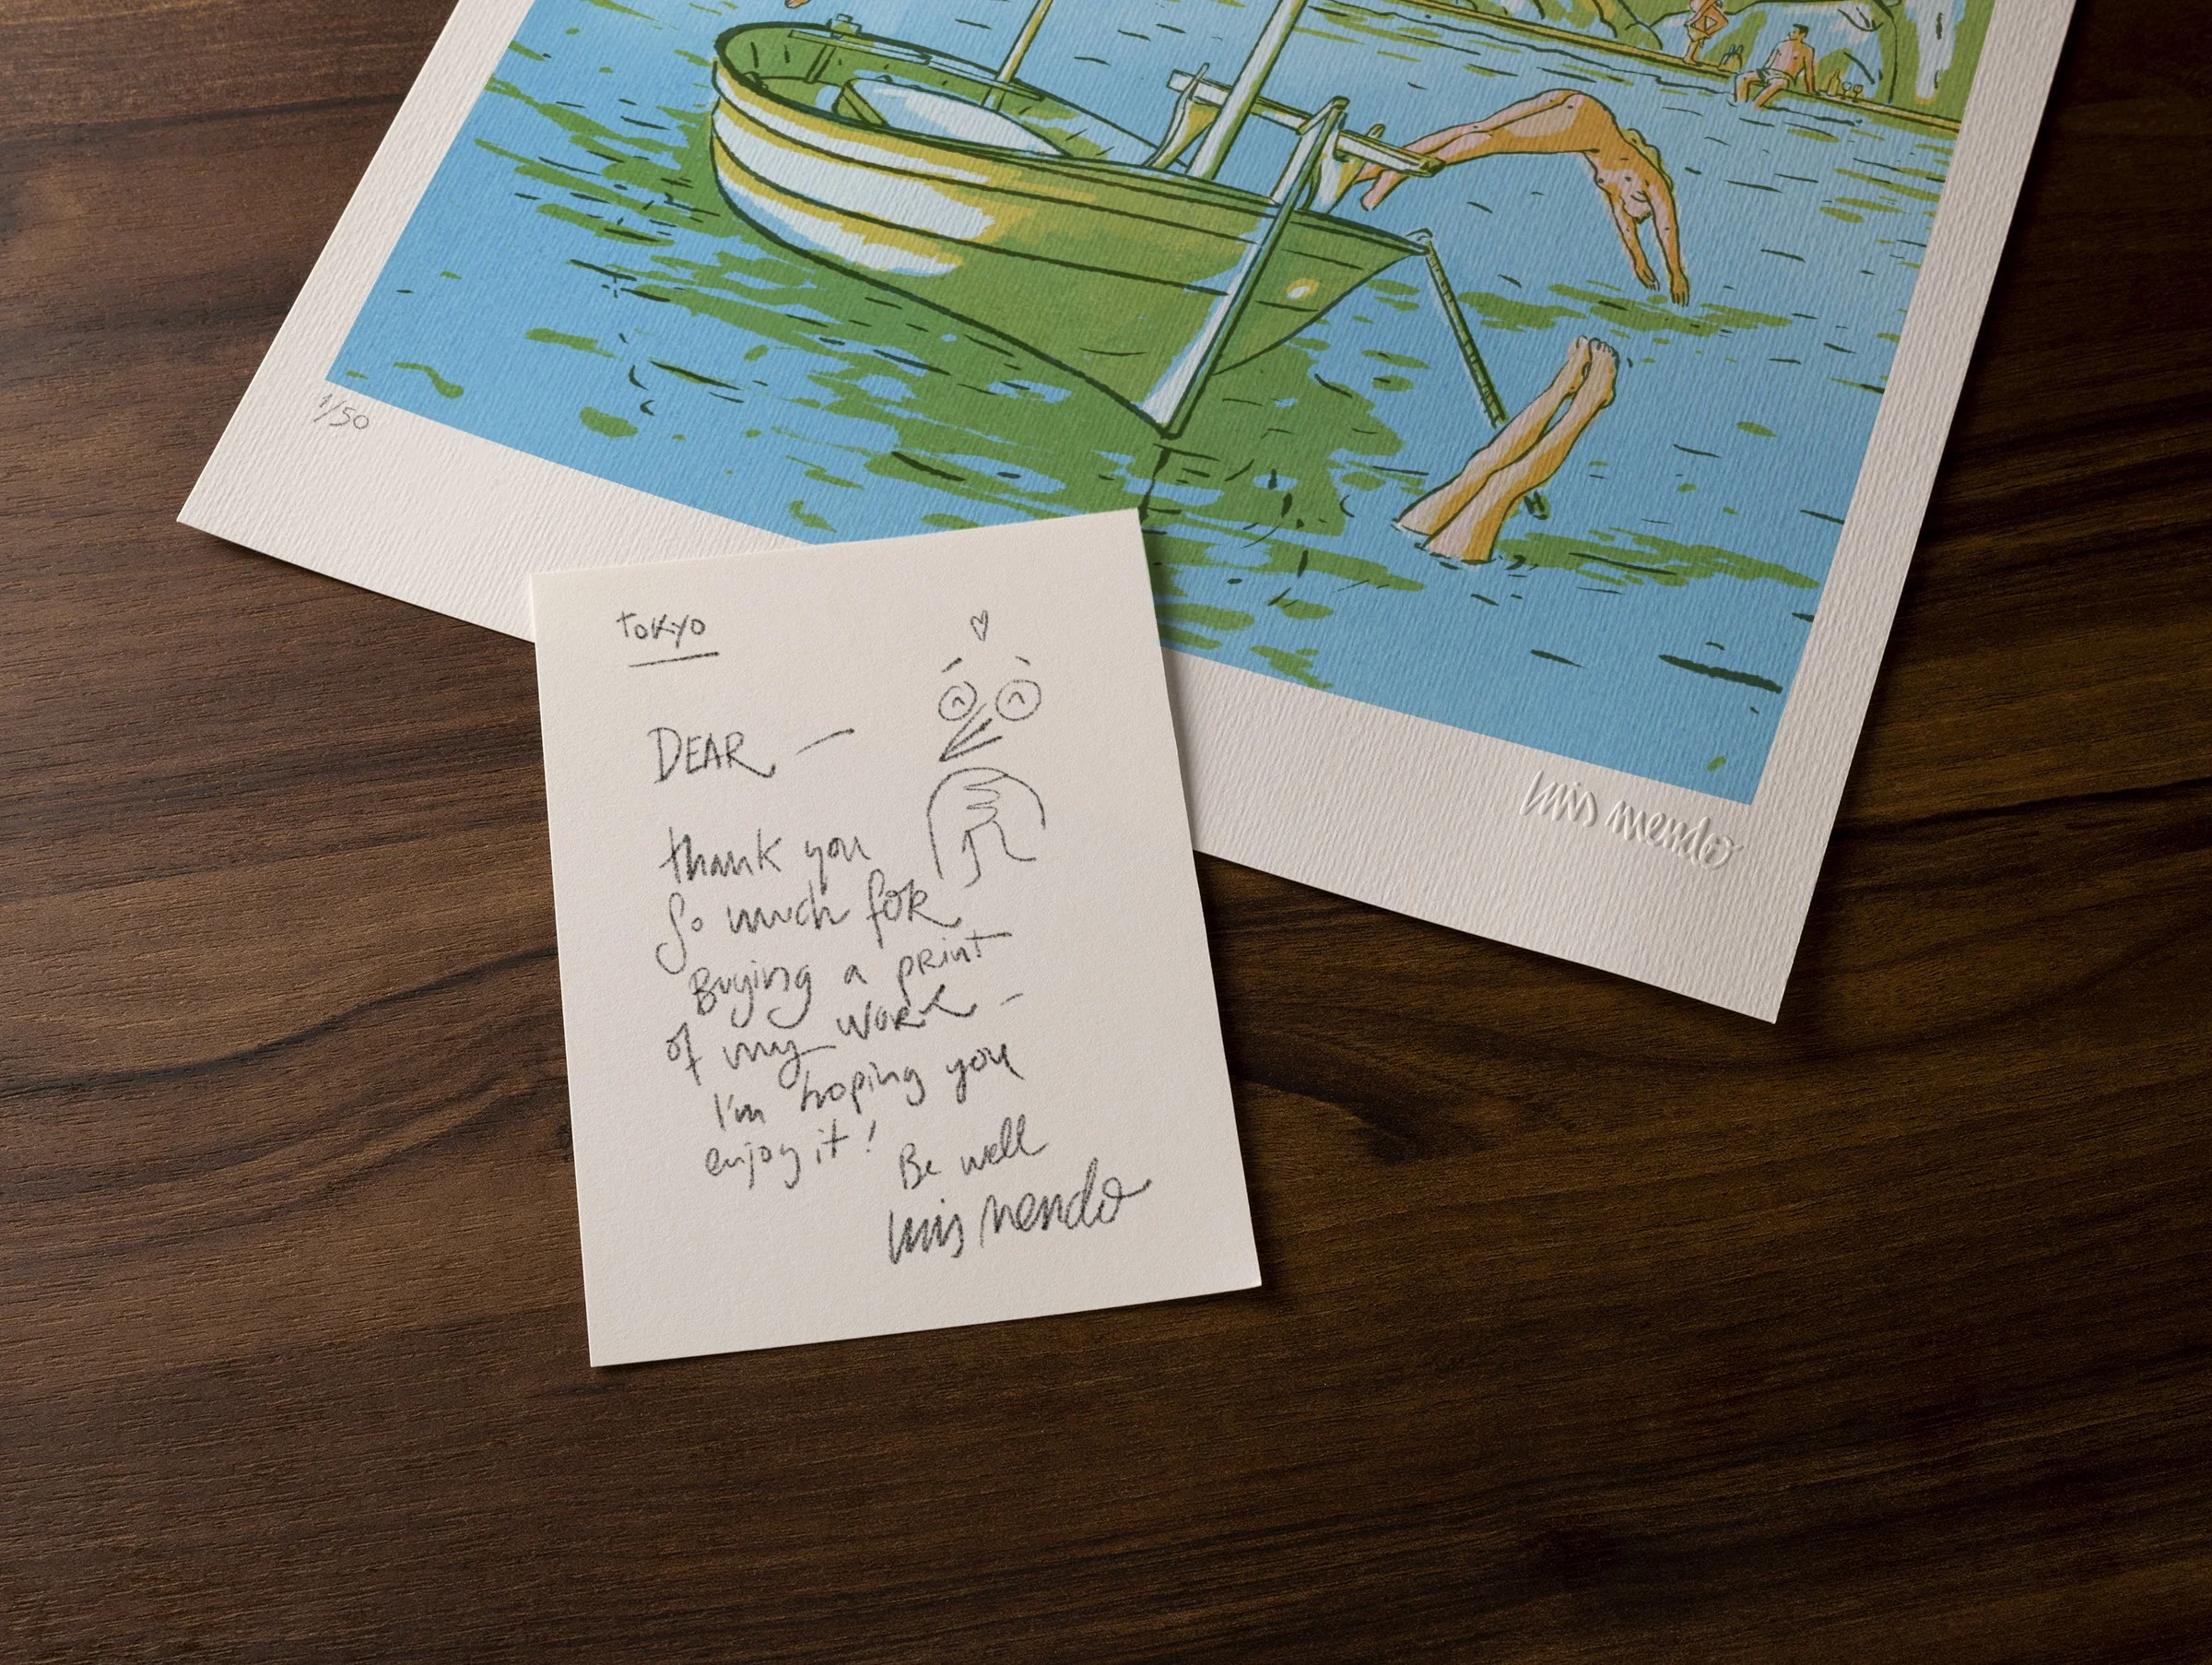 1/50
luis mendo
tokyo
DEAR —
thank you
So much for
Buying a print
of my work —
I'm hoping you
enjoy it!
Be well
luis mendo